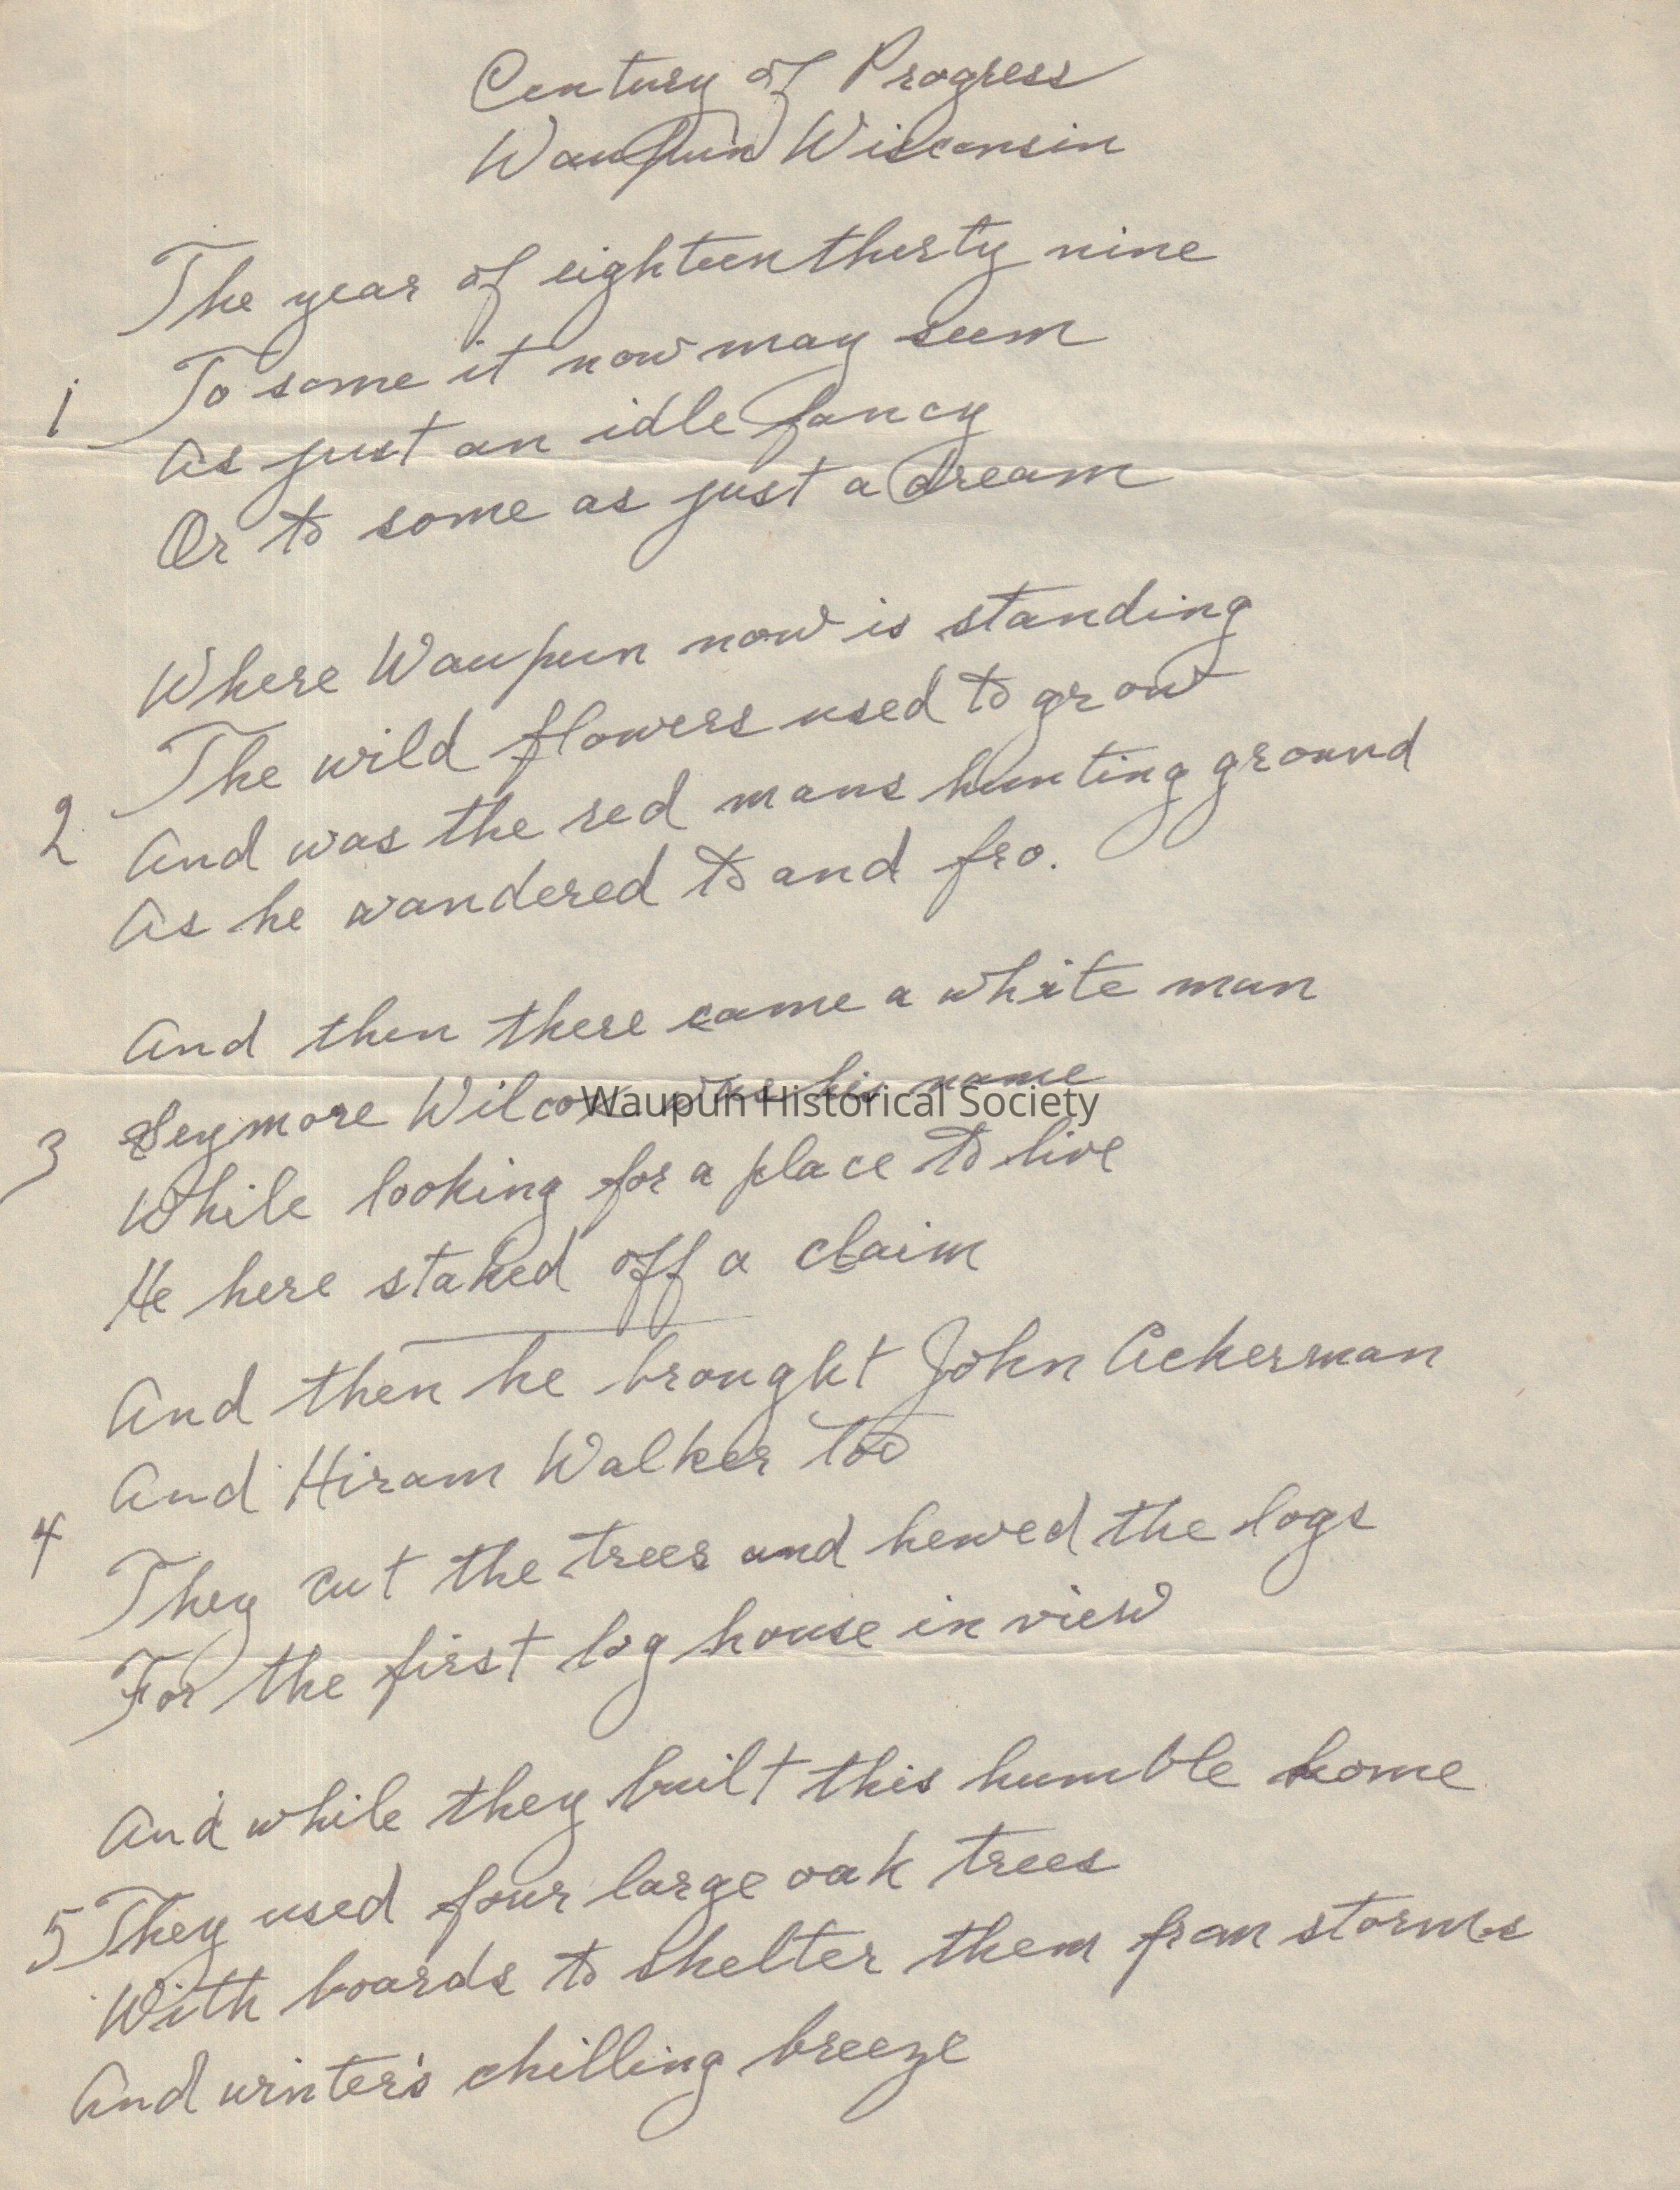 Century of Progress
Waupun Wisconsin
The year of eighteen thirty nine
1 To some it now may seem
As just an idle fancy
Or to some as just a dream
Where Waupun now is standing
The wild flowers used to grow
2 And was the red mans hunting ground
As he wandered to and fro.
And then there came a white man
3 Seymore Wilcox was his name
Waupun Historical Society
While looking for a place to live
He here staked off a claim
And then he brought John Ackerman
And Hiram Walker too
4 They cut the trees and hewed the logs
For the first log house in view
And while they built this humble home
5 They used four large oak trees
With boards to shelter them from storms
And winter's chilling breeze